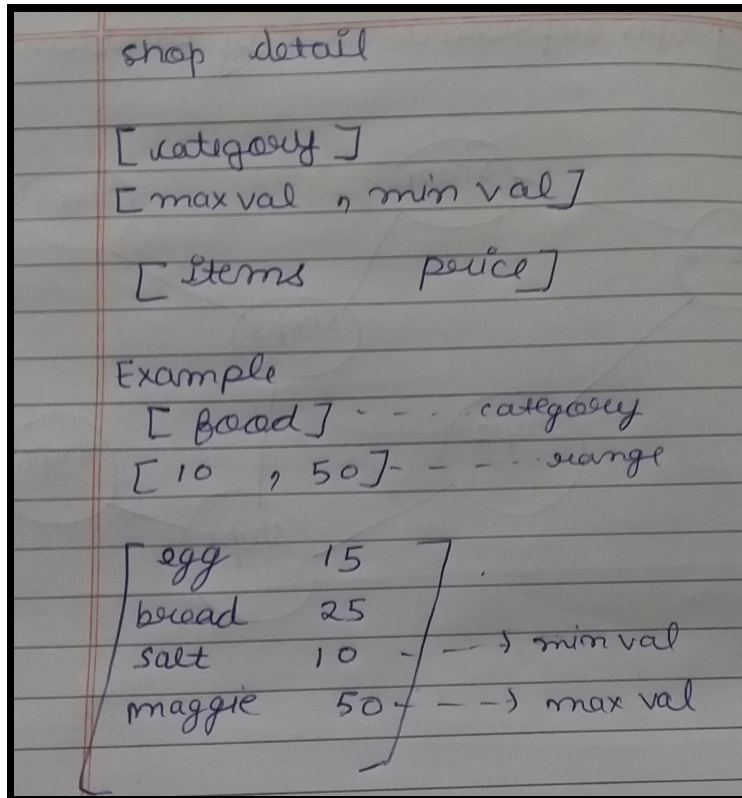 shop detail
[category]
[max val , min val]
[Items price]
Example
[Food] - - . . . category
[10 , 50] - - - - . . range
egg 15
bread 25
salt 10 - - - → min val
maggie 50 - - - → max val